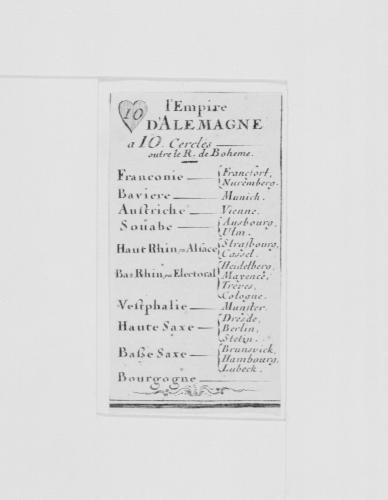 10
l'Empire
D'ALEMAGNE
a 10. Cercles
outre le R. de Boheme.
Franconie — Francfort,
Nuremberg.
Baviere — Munich.
Austriche — Vienne.
Souabe — Ausbourg,
Ulm.
Haut Rhin, ou Alsace Strasbourg,
Cassel.
Bas Rhin, ou Electoral Heidelberg,
Mayence,
Trèves,
Cologne.
Vestphalie — Munster.
Haute Saxe — Dresde,
Berlin,
Stetin.
Basse Saxe — Brunsvick,
Hambourg,
Lubeck.
Bourgogne —